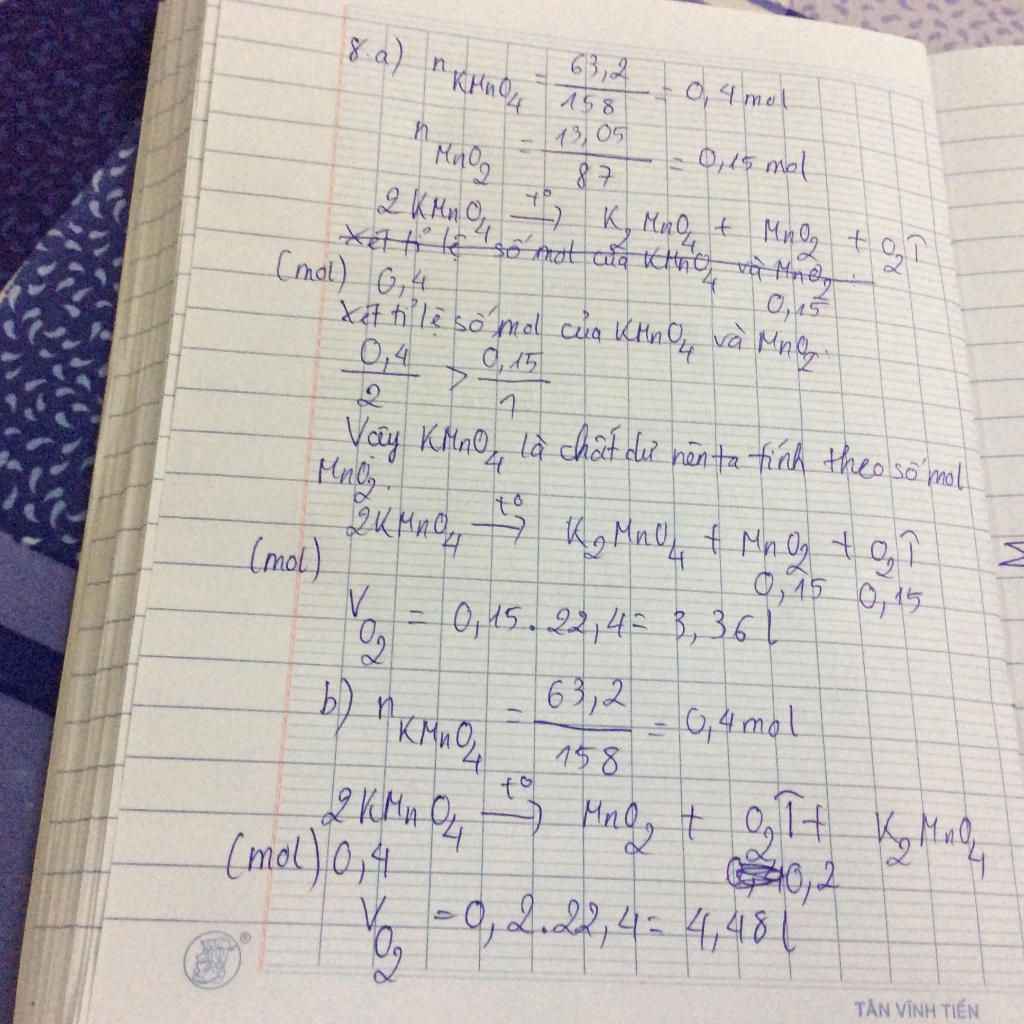 8.a) n KMnO4 = 63,2/158 = 0,4 mol
n MnO2 = 13,05/87 = 0,15 mol
2KMnO4 t° → K2MnO4 + MnO2 + O2↑
Xét tỉ lệ số mol của KMnO4 và MnO2.
(mol) 0,4 0,15
Xét tỉ lệ số mol của KMnO4 và MnO2.
0,4/2 > 0,15/1
Vậy KMnO4 là chất dư nên ta tính theo số mol
MnO2.
2KMnO4 t° → K2MnO4 + MnO2 + O2↑
(mol) 0,15 0,15
V O2 = 0,15.22,4= 3,36 l
b) n KMnO4 = 63,2/158 = 0,4 mol
2KMnO4 t° → MnO2 + O2↑ + K2MnO4
(mol) 0,4 0,2
V O2 = 0,2.22,4= 4,48 l
®
TÂN VĨNH TIẾN